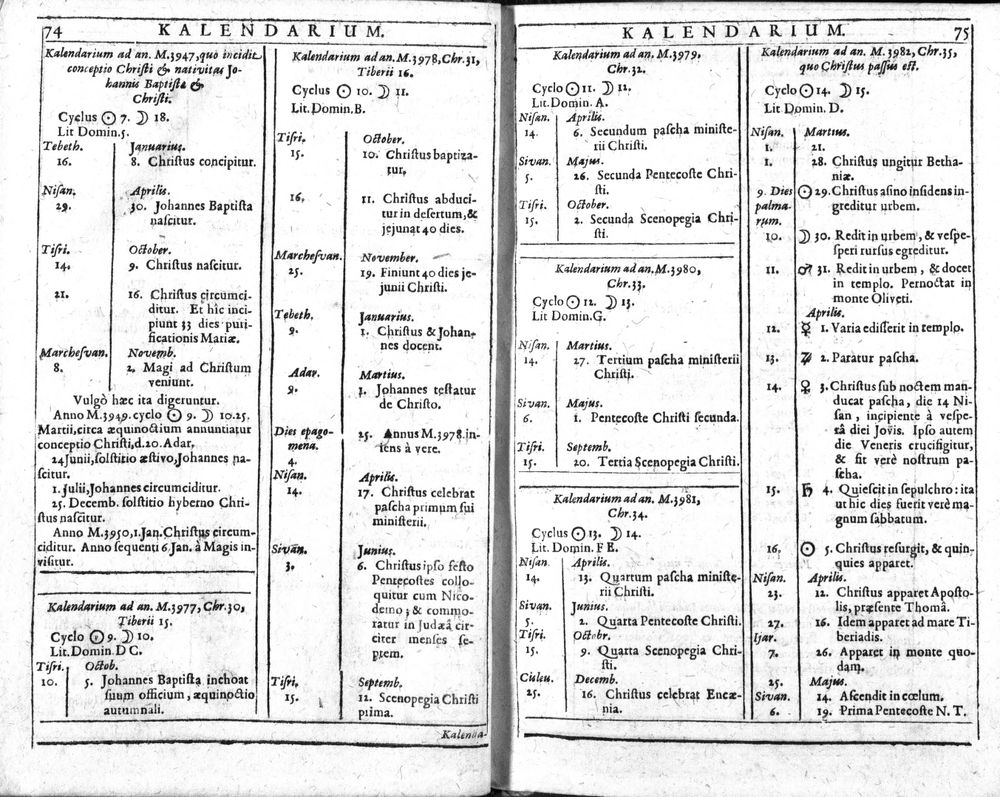 74 KALENDARIUM.
Kalendarium ad an. M.3947, quo incidit
conceptio Christi & nativitas Jo-
hannis Baptistæ &
Christi.
Cyclus ☉ 7. ☽ 18.
Lit Domin.5.
Tebeth. Januarius.
16. 8. Christus concipitur.
Nisan. Aprilis.
29. 30. Johannes Baptista
nascitur.
Tisri. October.
14. 9. Christus nascitur.
21. 16. Christus circumci-
ditur. Et hîc inci-
piunt 33 dies puri-
ficationis Mariæ.
Marchesvan. Novemb.
8. 2. Magi ad Christum
veniunt.
Vulgò hæc ita digeruntur.
Anno M.3949. cyclo ☉ 9. ☽ 10.25.
Martii, circa æquinoctium annuntiatur
conceptio Christi, d.20. Adar.
24 Junii, solstitio æstivo, Johannes na-
scitur.
1. Julii, Johannes circumciditur.
25. Decemb. solstitio hyberno Chri-
stus nascitur.
Anno M.3950, 1. Jan. Christus circum-
ciditur. Anno sequenti 6 Jan. à Magis in-
visitur.
Kalendarium ad an. M.3977, Chr.30,
Tiberii 15.
Cyclo ☉ 9. ☽ 10.
Lit. Domin. D C.
Tisri. Octob.
10. 5. Johannes Baptista inchoat
suum officium, æquinoctio
autumnali.
Kalendarium ad an. M.3978, Chr.31,
Tiberii 16.
Cyclus ☉ 10. ☽ 11.
Lit. Domin. B.
Tisri. October.
15. 10. Christus baptiza-
tur.
16. 11. Christus abduci-
tur in desertum, &
jejunat 40 dies.
Marchesvan. November.
25. 19. Finiunt 40 dies je-
junii Christi.
Tebeth. Januarius.
9. 1. Christus & Johan-
nes docent.
Adar. Martius.
9. 1. Johannes testatur
de Christo.
Dies epago- 25. Annus M.3978. in-
mena. tens à vere.
4.
Nisan. Aprilis.
14. 17. Christus celebrat
pascha primum sui
ministerii.
Sivan. Junius.
3. 6. Christus ipso festo
Pentecostes collo-
quitur cum Nico-
demo; & commo-
ratur in Judæâ cir-
citer menses se-
ptem.
Tisri, Septemb.
15. 12. Scenopegia Christi
prima.
Kalenda-
KALENDARIUM. 75
Kalendarium ad an. M.3979,
Chr.32.
Cyclo ☉ 11. ☽ 12.
Lit. Domin. A.
Nisan. Aprilis.
14. 6. Secundum pascha ministe-
rii Christi.
Sivan. Majus.
5. 26. Secunda Pentecoste Chri-
sti.
Tisri. October.
15. 2. Secunda Scenopegia Chri-
sti.
Kalendarium ad an. M.3980,
Chr.33.
Cyclo ☉ 12. ☽ 13.
Lit. Domin. G.
Nisan. Martius.
14. 27. Tertium pascha ministerii
Christi.
Sivan. Majus.
6. 1. Pentecoste Christi secunda.
Tisri. Septemb.
15. 20. Tertia Scenopegia Christi.
Kalendarium ad an. M.3981,
Chr.34.
Cyclus ☉ 13. ☽ 14.
Lit. Domin. F E.
Nisan. Aprilis.
14. 13. Quartum pascha ministe-
rii Christi.
Sivan. Junius.
5. 2. Quarta Pentecoste Christi.
Tisri. Octobr.
15. 9. Quarta Scenopegia Chri-
sti.
Cisleu. Decemb.
25. 16. Christus celebrat Encæ-
nia.
Kalendarium ad an. M.3982, Chr.35,
quo Christus passus est.
Cyclo ☉ 14. ☽ 15.
Lit. Domin. D.
Nisan. Martius.
1. 21.
1. 28. Christus ungitur Betha-
niæ.
9. Dies ☉ 29. Christus asino insidens in-
palma- greditur urbem.
rum.
10. ☽ 30. Redit in urbem, & vespe-
speri rursus egreditur.
11. ♂ 31. Redit in urbem, & docet
in templo. Pernoctat in
monte Oliveti.
Aprilis.
12. ☿ 1. Varia edisserit in templo.
13. ♃ 2. Paratur pascha.
14. ♀ 3. Christus sub noctem man-
ducat pascha, die 14 Ni-
san, incipiente à vespe-
râ diei Jovis. Ipso autem
die Veneris crucifigitur,
& fit verè nostrum pa-
scha.
15. ♄ 4. Quiescit in sepulchro: ita
ut hic dies fuerit verè ma-
gnum sabbatum.
16. ☉ 5. Christus resurgit, & quin-
quies apparet.
Nisan. Aprilis.
23. 12. Christus apparet Aposto-
lis, præsente Thomâ.
27. 16. Idem apparet ad mare Ti-
beriadis.
Ijar.
7. 26. Apparet in monte quo-
dam.
25. Majus.
Sivan. 14. Ascendit in cœlum.
6. 19. Prima Pentecoste N. T.